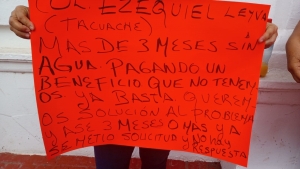 COL EZEQUIEL LEYVA
(TACUACHE)
MAS DE 3 MESES SIN
AGUA. PAGANDO UN
BENEFICIO QUE NO TENEM
OS. YA BASTA. QUEREM
OS SOLUCIÓN AL PROBLEMA
YASE 3 MESES O MAS YA
SE METIO SOLICITUD Y NO HAY
RESPUESTA